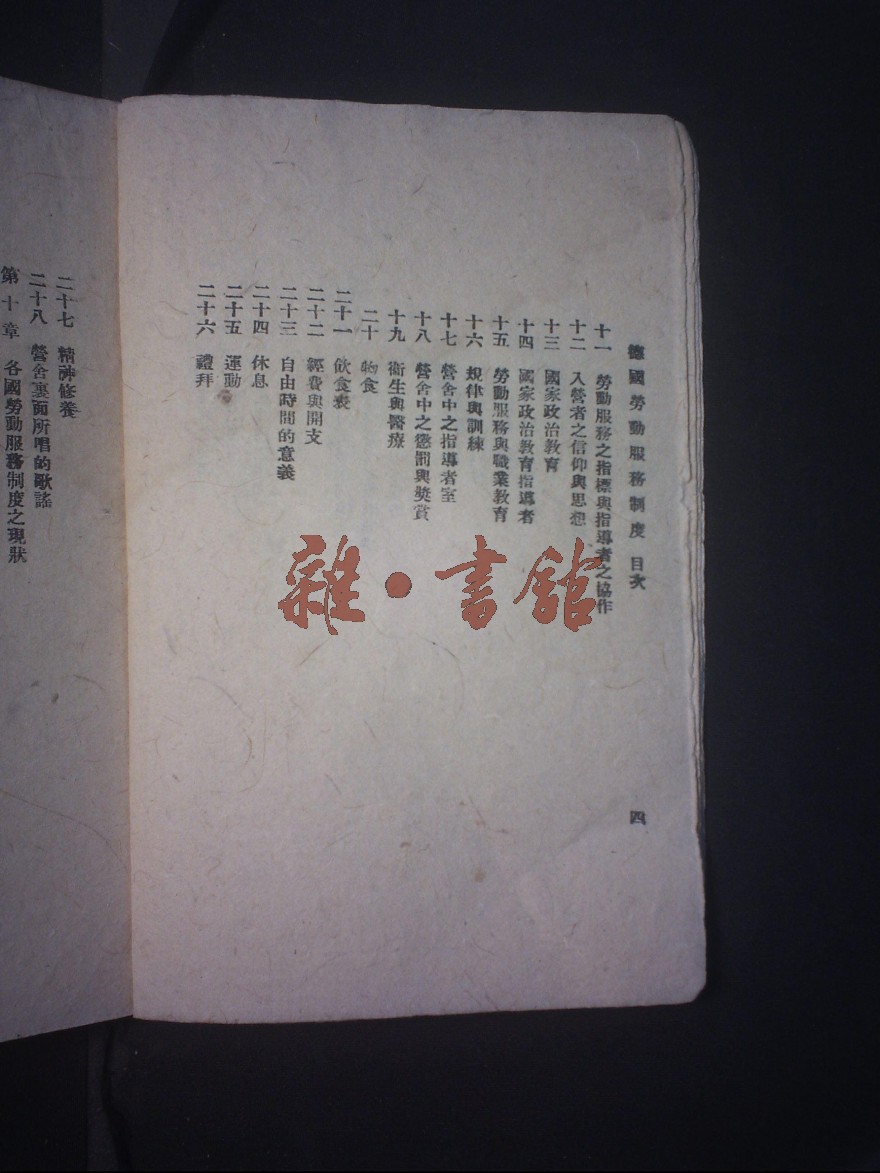 德國勞動服務制度 目次
十一 勞動服務之指標與指導者之協作
十二 入營者之信仰與思想
十三 國家政治教育
十四 國家政治教育指導者
十五 勞動服務與職業教育
十六 規律與訓練
十七 營舍中之指導者室
十八 營舍中之懲罰與獎賞
十九 衞生與醫療
二十 物食
二十一 飲食表
二十二 經費與開支
二十三 自由時間的意義
二十四 休息
二十五 運動
二十六 禮拜
四
二十七 精神修養
二十八 營舍裏面所唱的歌謠
第十章 各國勞動服務制度之現狀
雜·書館